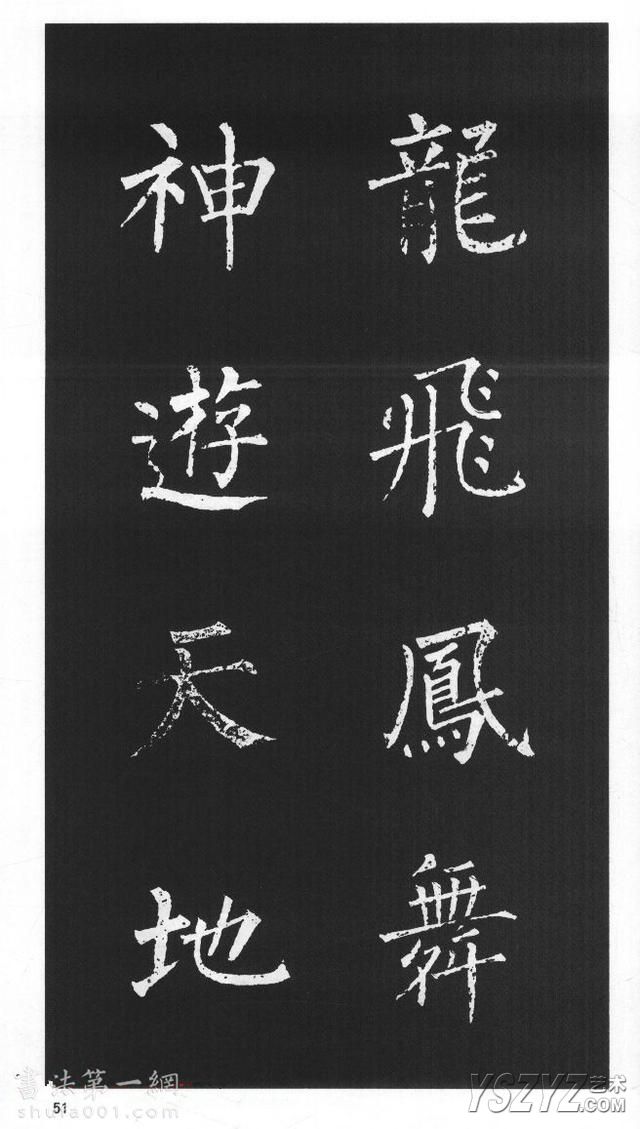 龍飛鳳舞
神遊天地
書法第一網
shufa001.com
51
YSZYZ艺术
.COM